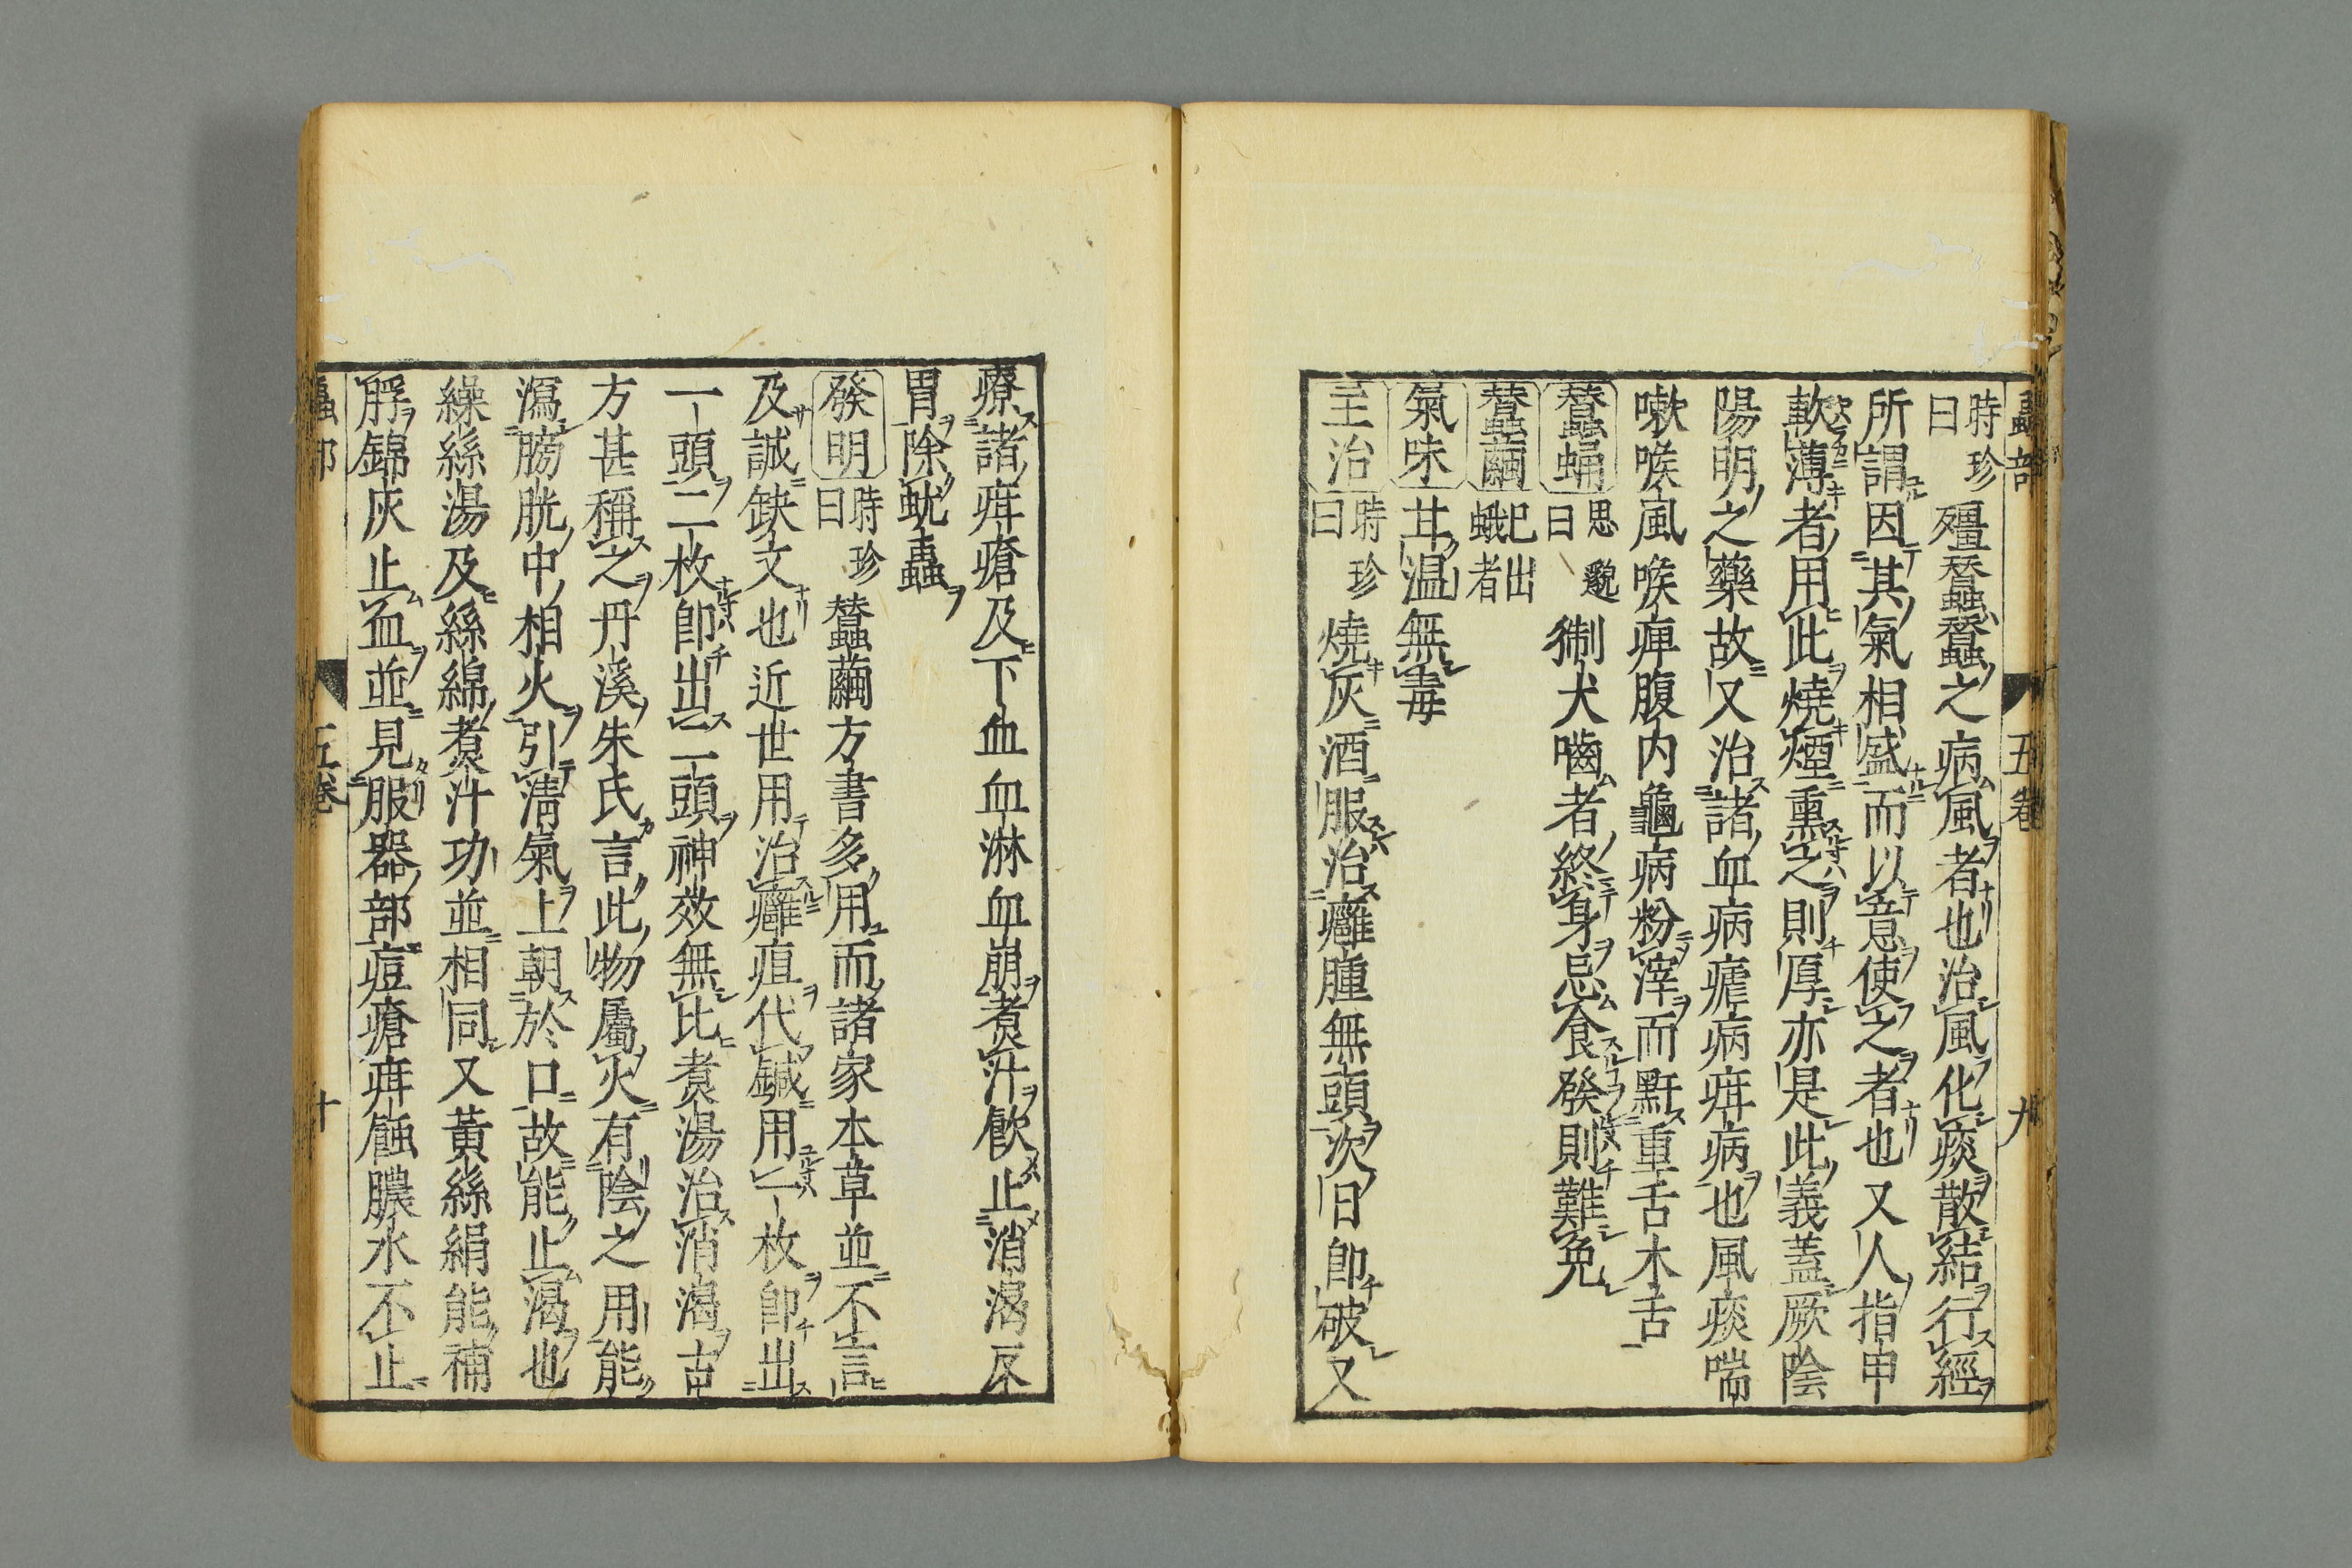 蟲部 五卷 九
時珍曰殭蠶蠶之病風者也治風化痰散結行經
所謂因其氣相盛而以意使之者也又人指甲
軟薄者用此燒煙熏之則厚亦是此義蓋厥陰
陽明之藥故又治諸血病瘧病疳病也風痰喘
嗽喉風喉痺腹内龜病粉滓而䵟重舌木舌
蠶蛹 思邈曰 猘犬嚙者終身忌食發則難免
蠶繭 已出蛾者
氣味 甘温無毒
主治 時珍曰 燒灰酒服治癰腫無頭次日卽破又
療諸疳瘡及下血血淋血崩煮汁飲止消渴反
胃除蚘蟲
發明 時珍曰 蠶繭方書多用而諸家本草並不言
及誠缺文也近世用治癰疽代鍼用一枚卽出
一頭二枚卽出二頭神效無比煮湯治消渴古
方甚稱之丹溪朱氏言此物屬火有陰之用能
瀉膀胱中相火引淸氣上朝於口故能止渴也
繰絲湯及絲綿煮汁功並相同又黃絲絹能補
脬錦灰止血並見服器部痘瘡疳蝕膿水不止
蟲部 五卷 十